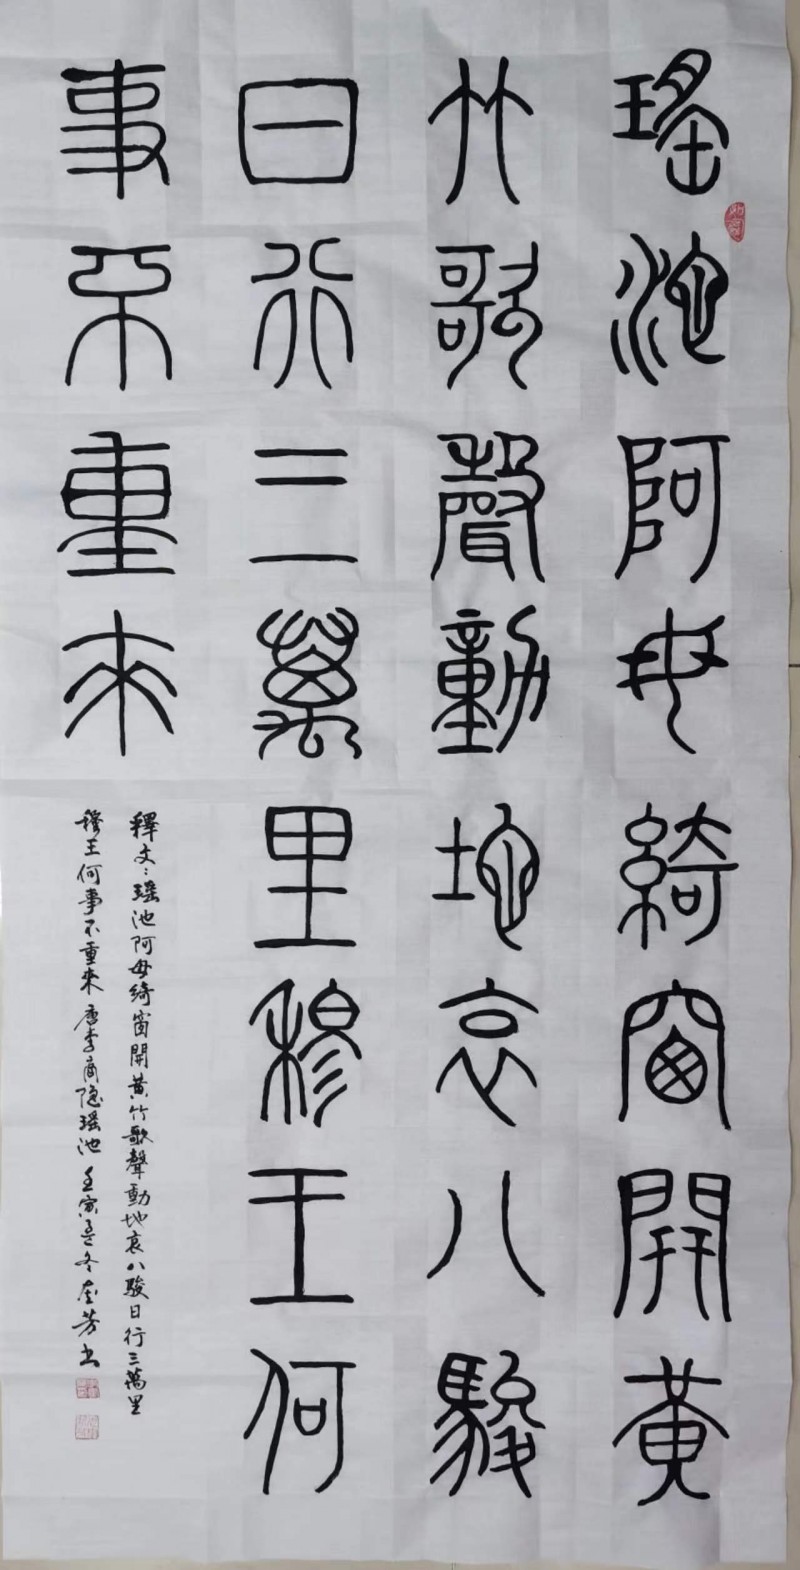 瑤池阿母綺窗開黃
竹歌聲動地哀八駿
日行三萬里穆王何
事不重來
釋文：瑤池阿母綺窗開黃竹歌聲動地哀八駿日行三萬里
穆王何事不重來 唐李商隐瑤池 壬寅孟冬奎芳书